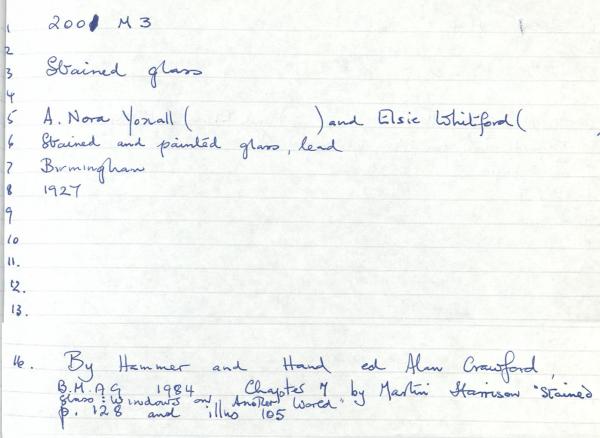 1 2001 M 3
2
3 Stained glass
4
5 A. Nora Yoxall ( ) and Elsie Whitford (
6 Stained and painted glass, lead
7 Birmingham
8 1927
9
10
11.
12.
13.
16. By Hammer and Hand ed Alan Crawford,
B.M.A.G 1984 Chapter 7 by Martin Harrison "Stained
glass: Windows on Another World"
p. 128 and illus 105